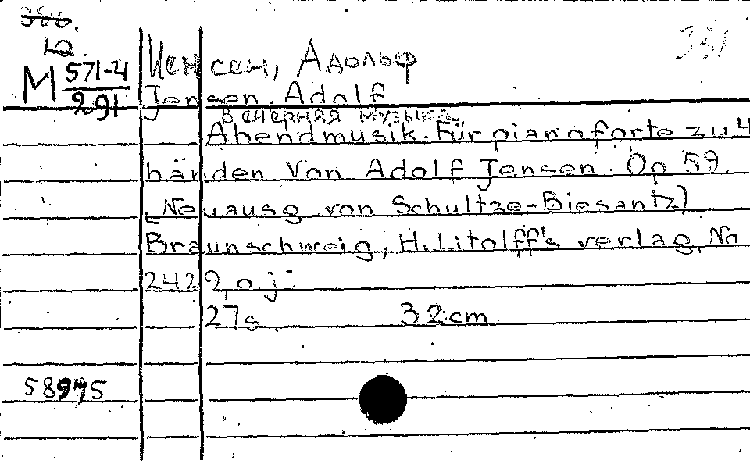 Ю
М 571-4
291
Иенсен, Адольф
Jensen, Adolf
Вечерняя музыка
Abendmusik. Für pianoforte zu 4
händen von Adolf Jensen. Op 59.
[Neuausg von Schultze-Biesantz]
Braunschweig, H. Litolff's verlag, No
2422, o. j.
27s 32cm